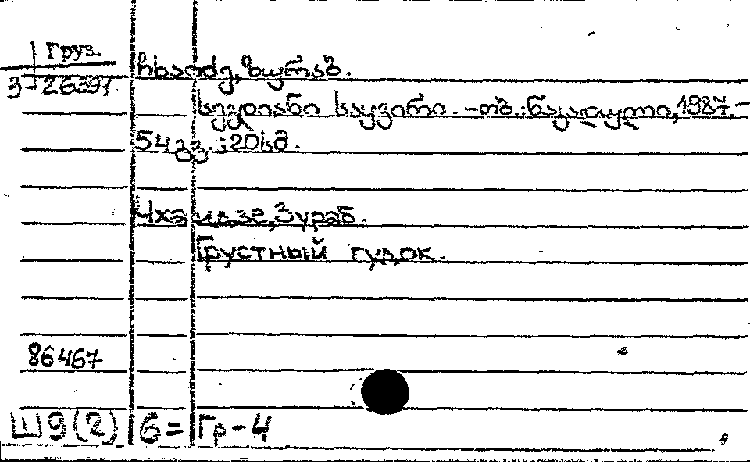 Груз.
3-26391.
ჩხაიძე, ზურაბ.
სევდიანი საყვირი. -თბ.: ნაკადული, 1987. -
54 გვ.; 20 სმ.
Чхаидзе, Зураб.
Грустный гудок.
86467
Ш9(2) 6= Гр-4